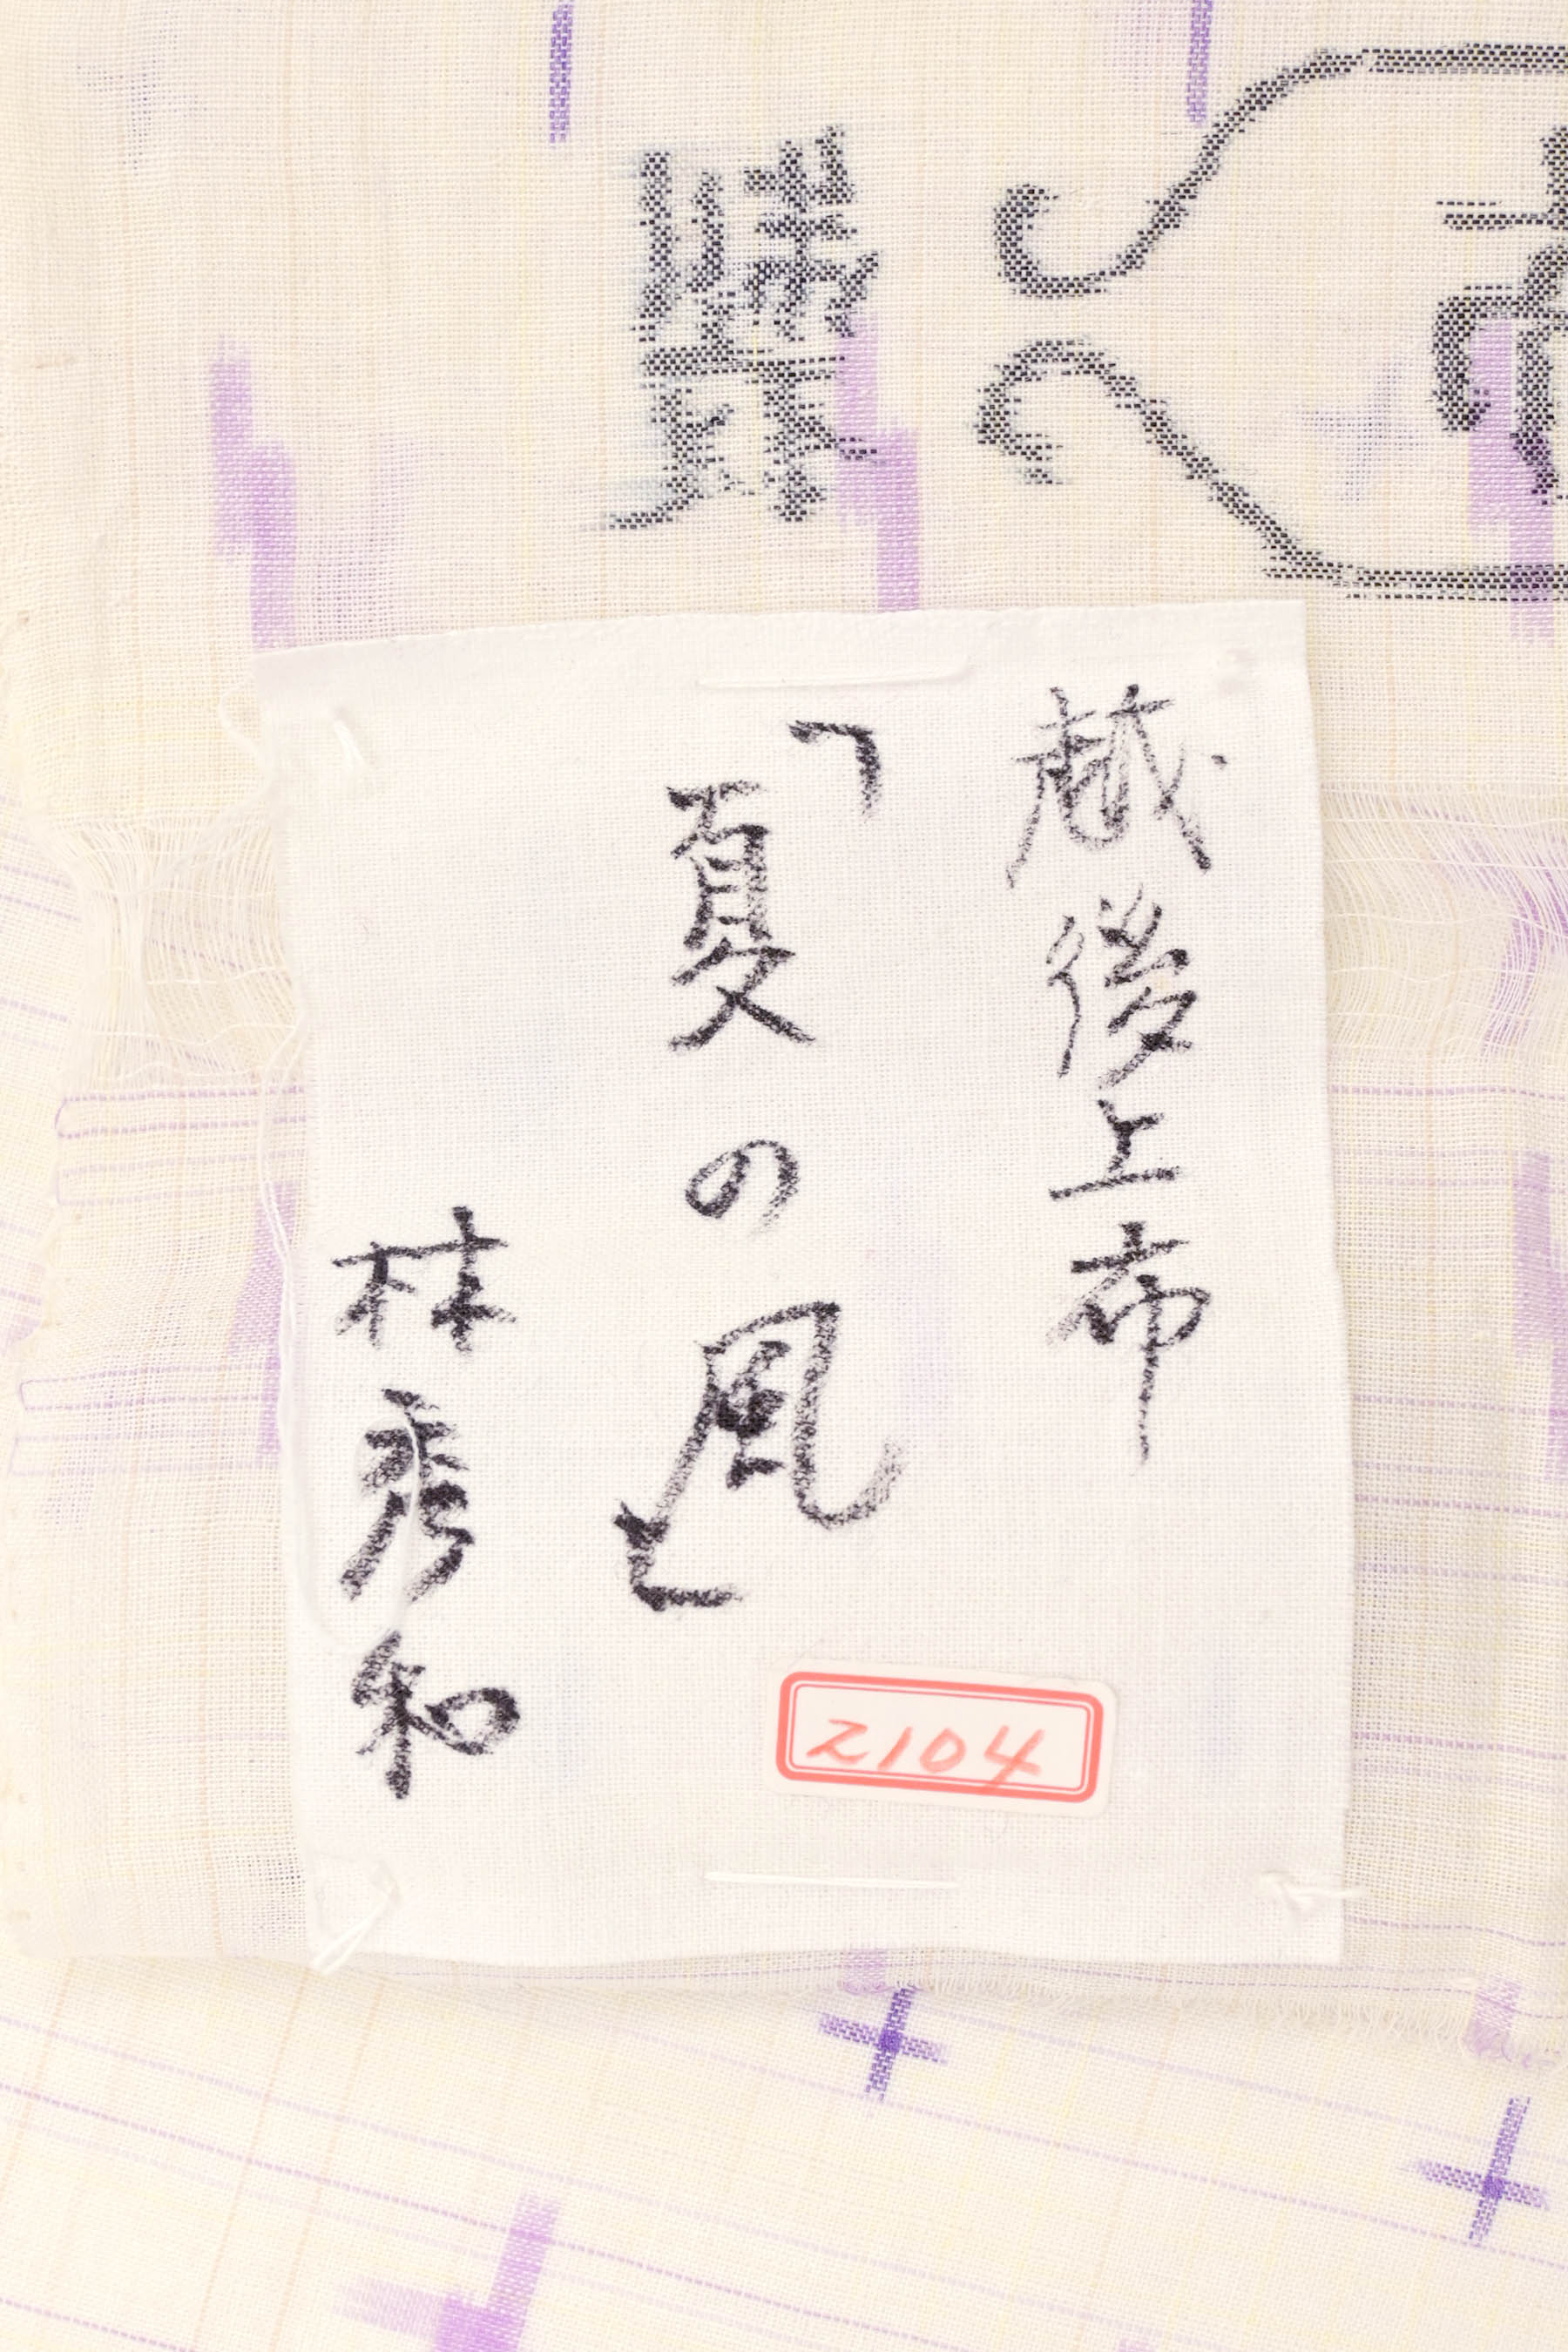 越後上布
「夏の風」
林秀和
2104